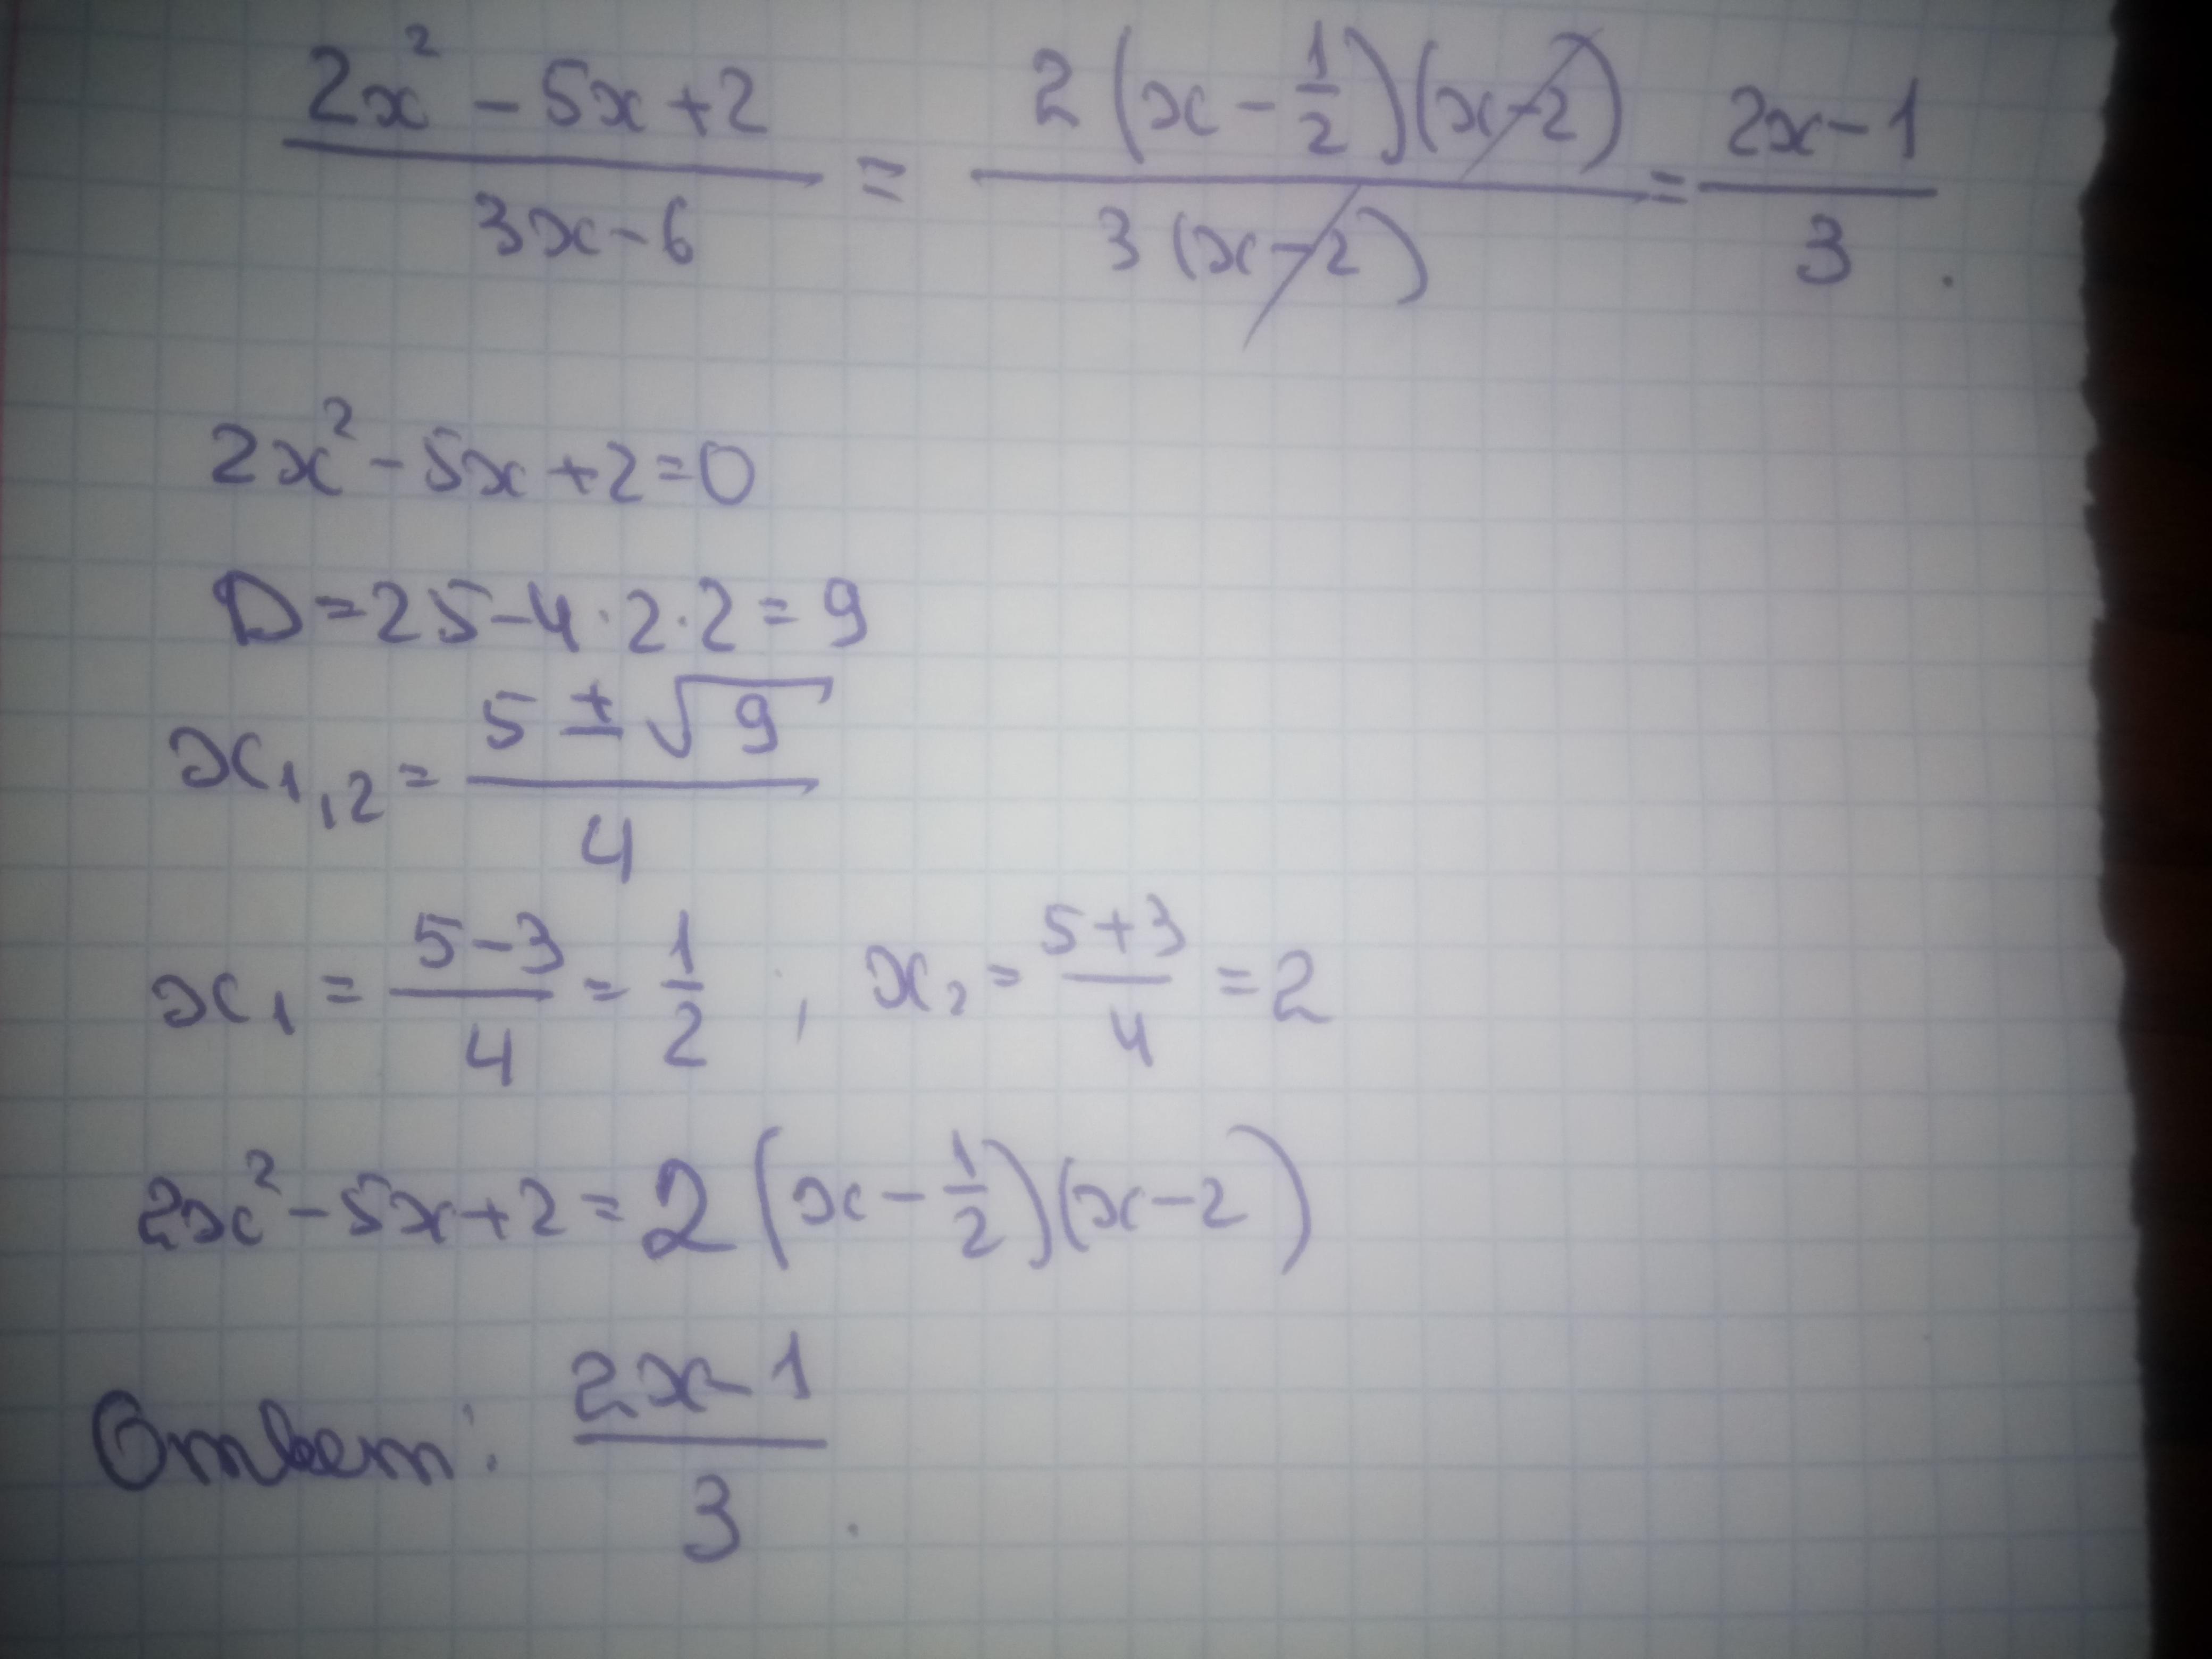 (2x² - 5x + 2)/(3x - 6) = (2(x - 1/2)(x - 2))/(3(x - 2)) = (2x - 1)/3 .
2x² - 5x + 2 = 0
D = 25 - 4 · 2 · 2 = 9
x₁,₂ = (5 ± √9)/4
x₁ = (5 - 3)/4 = 1/2 ; x₂ = (5 + 3)/4 = 2
2x² - 5x + 2 = 2(x - 1/2)(x - 2)
Ответ: (2x - 1)/3 .